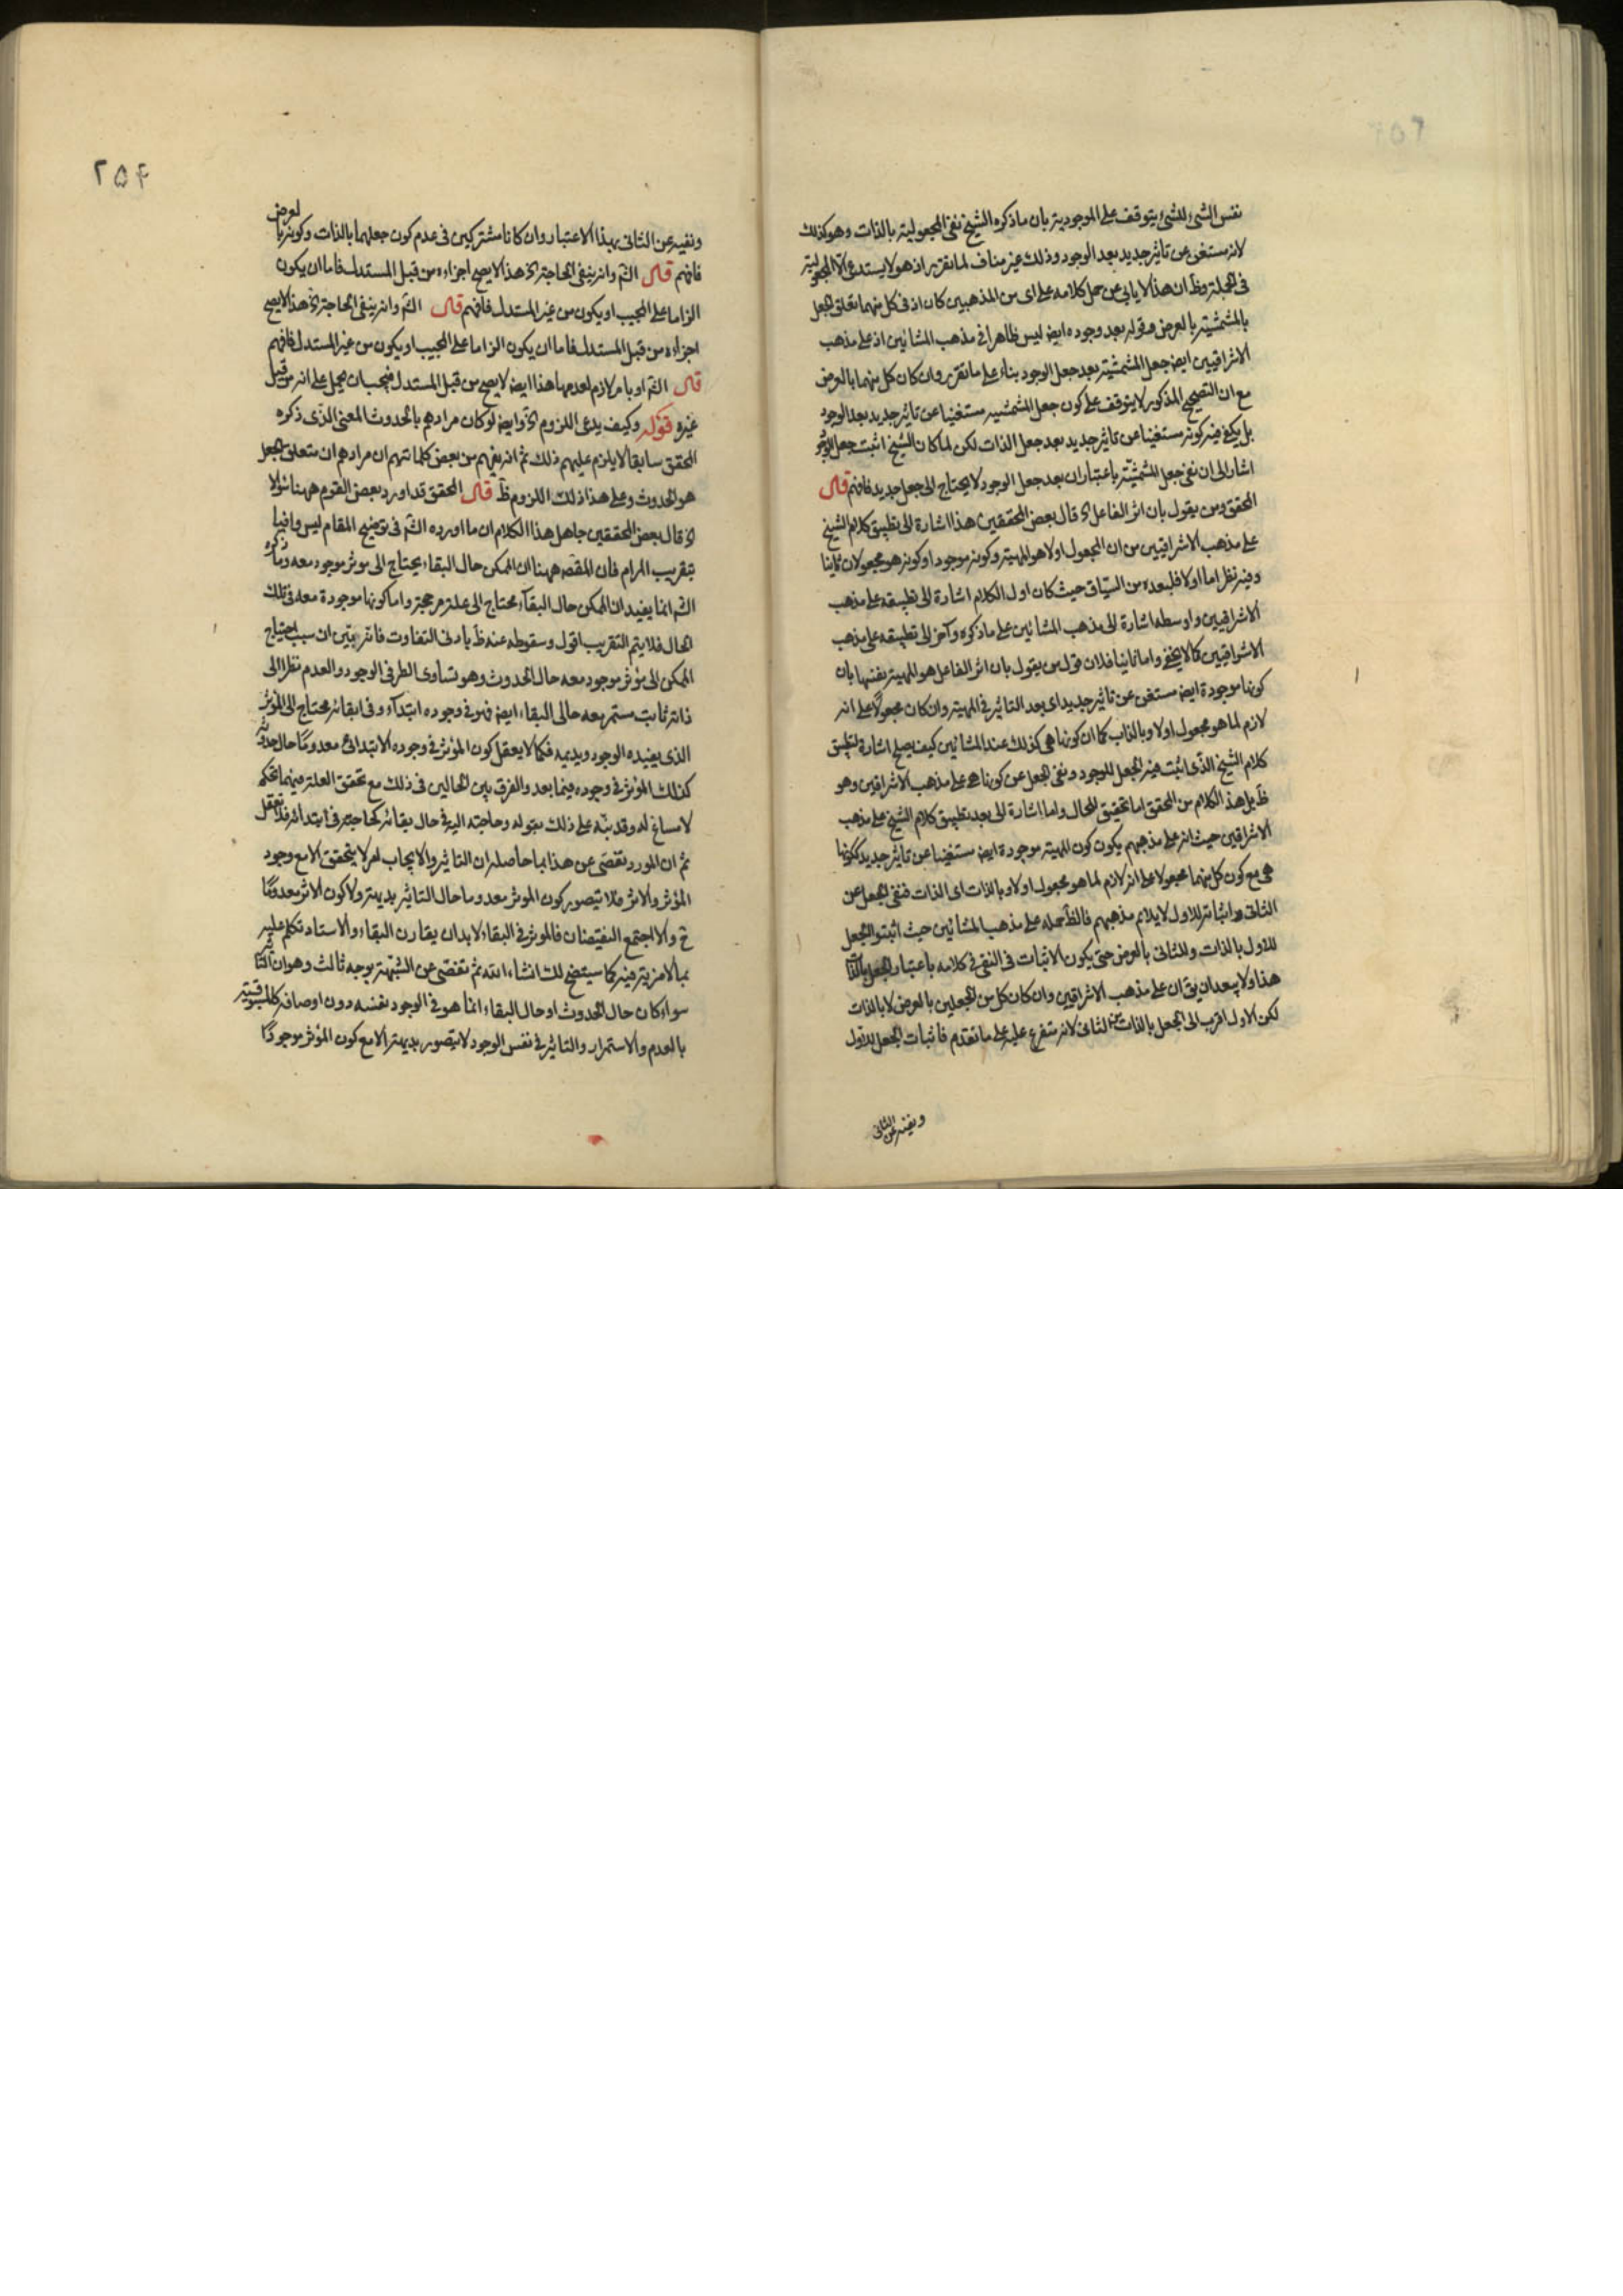 نفس الشئ للشئ يتوقف على الموجودية بان ما ذكره الشيخ نفى المجعولية بالذات وهو كذلك
لانه مستغنى عن تاثير جديد بعد الوجود وذلك غير مناف لما تقرر اذ هو لا يستدعى الا المجعولية
فى الجملة وظ ان هذا لا يابى عن حمل كلامه على اى من المذهبين كان اذ فى كل منهما تعلق الجعل
بالمشمشية بالعرض وقوله بعد وجوده ايض ليس ظاهرا فى مذهب المشائين اذ على مذهب
الاشراقيين ايض جعل المشمشية بعد جعل الوجود بناء على ما تقرر وان كان كل منهما بالعرض
مع ان التصحيح المذكور لا يتوقف على كون جعل المشمشية مستغنيا عن تاثير جديد بعد الوجود
بل يكفى فيه كونه مستغنيا عن تاثير جديد بعد جعل الذات لكن لما كان الشيخ اثبت جعل الوجود
اشار الى ان نفى جعل المشمشية باعتبار ان بعد جعل الوجود لا يحتاج الى جعل جديد فافهم قال
المحقق ومن يقول بان اثر الفاعل الخ قال بعض المحققين هذا اشارة الى تطبيق كلام الشيخ
على مذهب الاشراقيين من ان المجعول اولا هو المهية وكونه موجودا وكونه هو مجعولان ثانيا
وفيه نظر اما اولا فلبعده من السياق حيث كان اول الكلام اشارة الى تطبيقه على مذهب
الاشراقيين واوسطه اشارة الى مذهب المشائين على ما ذكره وآخر الى تطبيقه على مذهب
الاشراقيين كما لا يخفى واما ثانيا فلان قول من يقول بان اثر الفاعل هو المهية بنفسها بان
كونها موجودة ايض مستغن عن تاثير جديد اى بعد التاثير فى المهية وان كان مجعولا على انه
لازم لما هو مجعول اولا وبالذات كما ان كونها هى كذلك عند المشائين كيف يصلح اشارة لتطبيق
كلام الشيخ الذى اثبت فيه الجعل للوجود ونفى الجعل عن كونها هى على مذهب الاشراقيين وهو
ظ بل هذا الكلام من المحقق اما تحقيق للحال واما اشارة الى بعد تطبيق كلام الشيخ على مذهب
الاشراقيين حيث انه على مذهبهم يكون كون المهية موجودة ايض مستغنيا عن تاثير جديد ككونها
هى مع كون كل منهما مجعولا على انه لازم لما هو مجعول اولا وبالذات اى الذات فنفى الجعل عن
الثانى واثباته للاول لا يلائم مذهبهم فالظ حمله على مذهب المشائين حيث اثبتوا الجعل
للاول بالذات وللثانى بالعرض حتى يكون الاثبات فى النفى فى كلامه باعتبار الجعل بالذات
هذا ولا يبعد ان يق ان على مذهب الاشراقيين وان كان كل من الجعلين بالعرض لا بالذات
لكن الاول اقرب الى الجعل بالذات من الثانى لانه متفرع عليه على ما تقدم فاثبات الجعل للاول
ونفيه عن الثانى
٢٥۴
ونفيه عن الثانى بهذا الاعتبار وان كانا مشتركين فى عدم كون جعلهما بالذات وكونه بالعرض
فافهم قال الشم وانه ينفى الحاجة الخ هذا لا يصح اجزاءه من قبل المستدل فاما ان يكون
الزاما على المجيب او يكون من غير المستدل فافهم قال الشم وانه ينفى الحاجة الخ هذا لا يصح
اجزاءه من قبل المستدل فاما ان يكون الزاما على المجيب او يكون من غير المستدل فافهم
قال الشم او بامر لازم لعدمها هذا ايض لا يصح من قبل المستدل فيجب ان يحمل على انه من قبل
غيره قوله وكيف يدعى اللزوم الخ وايض لو كان مرادهم بالحدوث المعنى الذى ذكره
المحقق سابقا لا يلزم عليهم ذلك ثم انه يفهم من بعض كلماتهم ان مرادهم ان متعلق الجعل
هو الحدوث وعلى هذا ذلك اللزوم ظ قال المحقق قد اورد بعض القوم ههنا سؤالا
الخ قال بعض المحققين حاصل هذا الكلام ان ما اورده الشم فى توضيح المقام ليس وافيا
بتقريب المرام فان المقصد ههنا ان الممكن حال البقاء يحتاج الى موثر موجود معه وما ذكره
الشم انما يفيد ان الممكن حال البقاء محتاج الى علة مرجحة واما كونها موجودة معه فى تلك
الحال فلا يتم التقريب اقول وسقوطه عنه ظ بادنى التفاوت فانه يبين ان سبب احتياج
الممكن الى مؤثر موجود معه حال الحدوث وهو تساوى الطرفى الوجود والعدم نظرا الى
ذاته ثابت مستمر معه حالى البقاء ايض فهو فى وجوده ابتداء وفى ابقائه محتاج الى المؤثر
الذى يفيده الوجود ويديمه فكما لا يعقل كون المؤثر فى وجوده الابتدائى معدوما حال حدوثه
كذلك المؤثر فى وجوده فيما بعد والفرق بين الحالين فى ذلك مع تحقق العلة فيهما تحكم
لا مساغ له وقد نبه على ذلك بقوله وحاجته اليه فى حال بقائه كحاجته فى ابتدائه فلا تغفل
ثم ان المورد تفصى عن هذا بما حاصله ان التاثير والايجاب امر لا يتحقق الا مع وجود
المؤثر والاثر فلا يتصور كون الموثر معدوما حال التاثير بديهة ولا كون الاثر معدوما
ح والا اجتمع النقيضان فالموثر فى البقاء لابد ان يقارن البقاء والاستاد تكلم عليه
بما لا مزية فيه كما سيتضح لك انشاء الله ثم تفصى عن الشبهة بوجه ثالث وهو ان التاثير
سواء كان حال الحدوث او حال البقاء انما هو فى الوجود نفسه دون اوصافه كالمسبوقية
بالعدم والاستمرار والتاثير فى نفس الوجود لا يتصور بديهة الا مع كون المؤثر موجودا